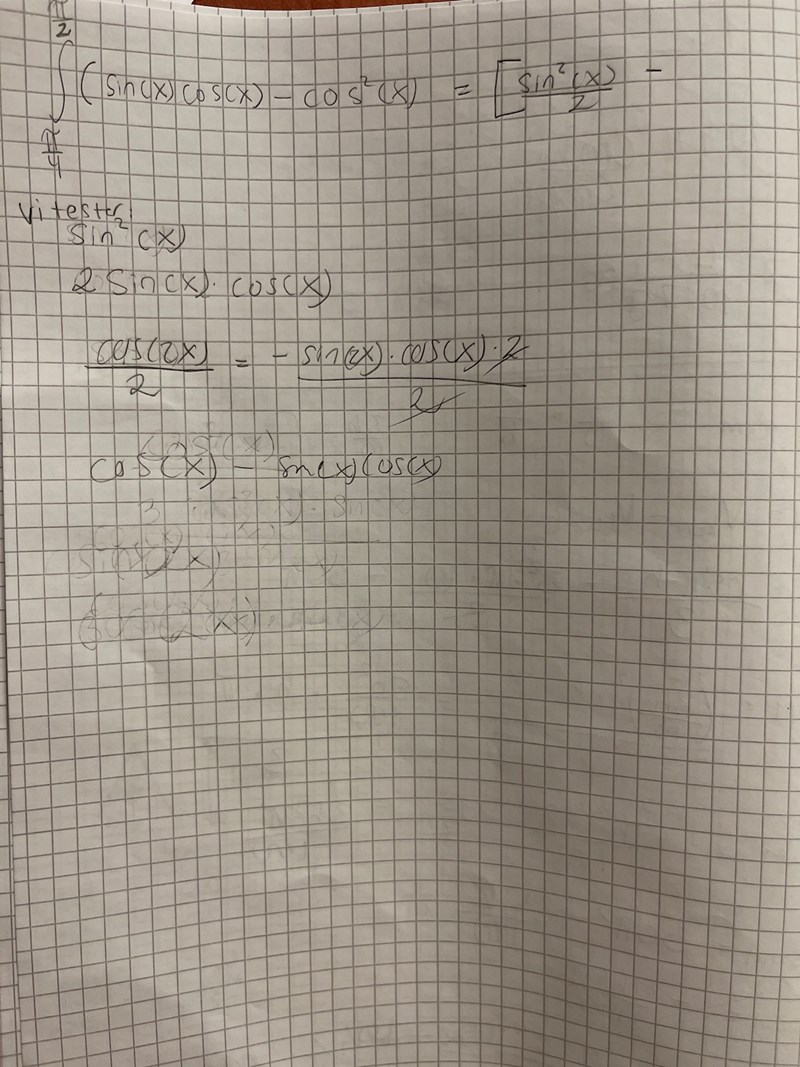 π/2
∫ (sin(x)cos(x) - cos²(x) = [sin²(x)/2 -
π/4
Vi tester
sin²(x)
2 sin(x) · cos(x)
cos(2x)/2 = - sin(2x) · cos(x) · 2/2
cos(x) - sin(x)cos(x)